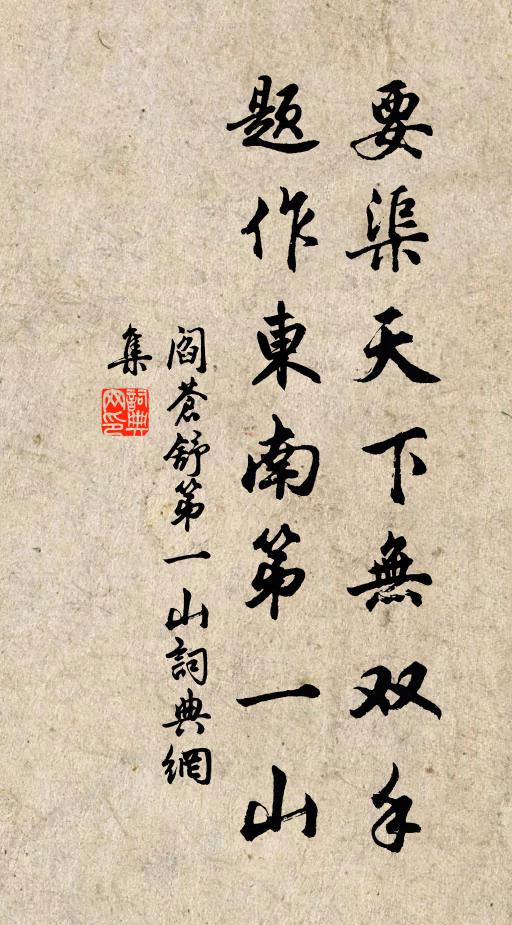 要渠天下無双手
題作東南第一山
閻蒼舒第一山詞典網
集
詞典
网印